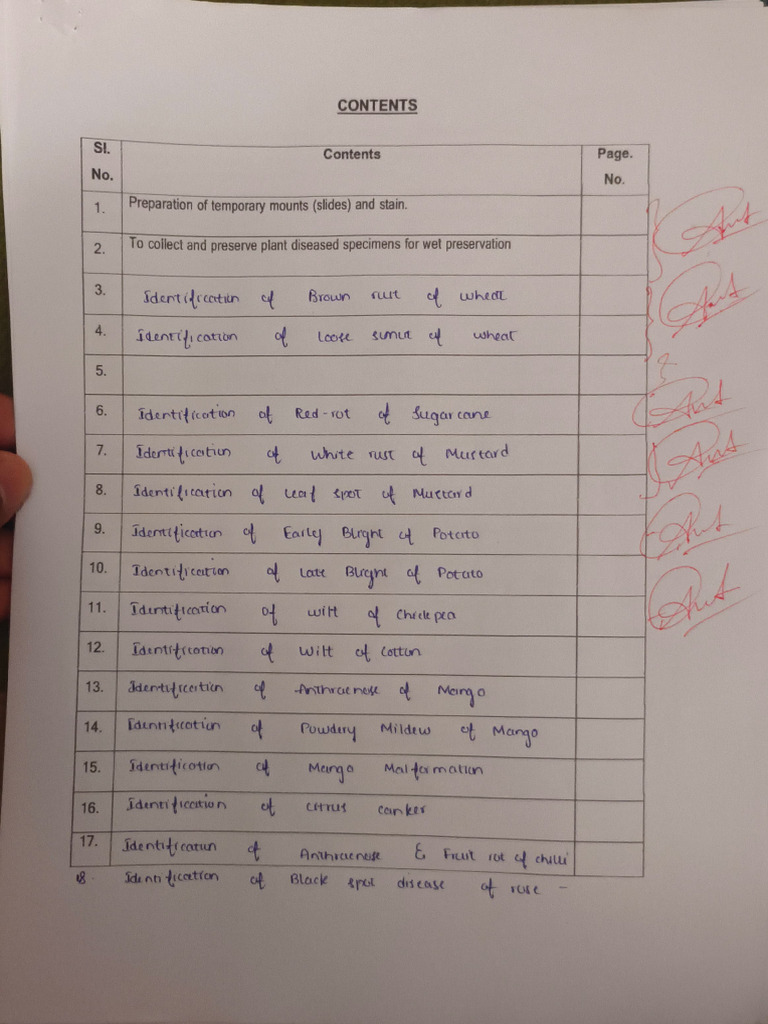 CONTENTS
Sl. No. Contents Page. No.
1. Preparation of temporary mounts (slides) and stain.
2. To collect and preserve plant diseased specimens for wet preservation
3. Identification of Brown rust of wheat
4. Identification of loose smut of wheat
5.
6. Identification of Red-rot of Sugarcane
7. Identification of White rust of Mustard
8. Identification of leaf spot of Mustard
9. Identification of Early Blight of Potato
10. Identification of late Blight of Potato
11. Identification of wilt of Chickpea
12. Identification of Wilt of Cotton
13. Identification of Anthracnose of Mango
14. Identification of Powdery Mildew of Mango
15. Identification of Mango Malformation
16. Identification of citrus canker
17. Identification of Anthracnose & Fruit rot of chilli
18. Identification of Black spot disease of rose -